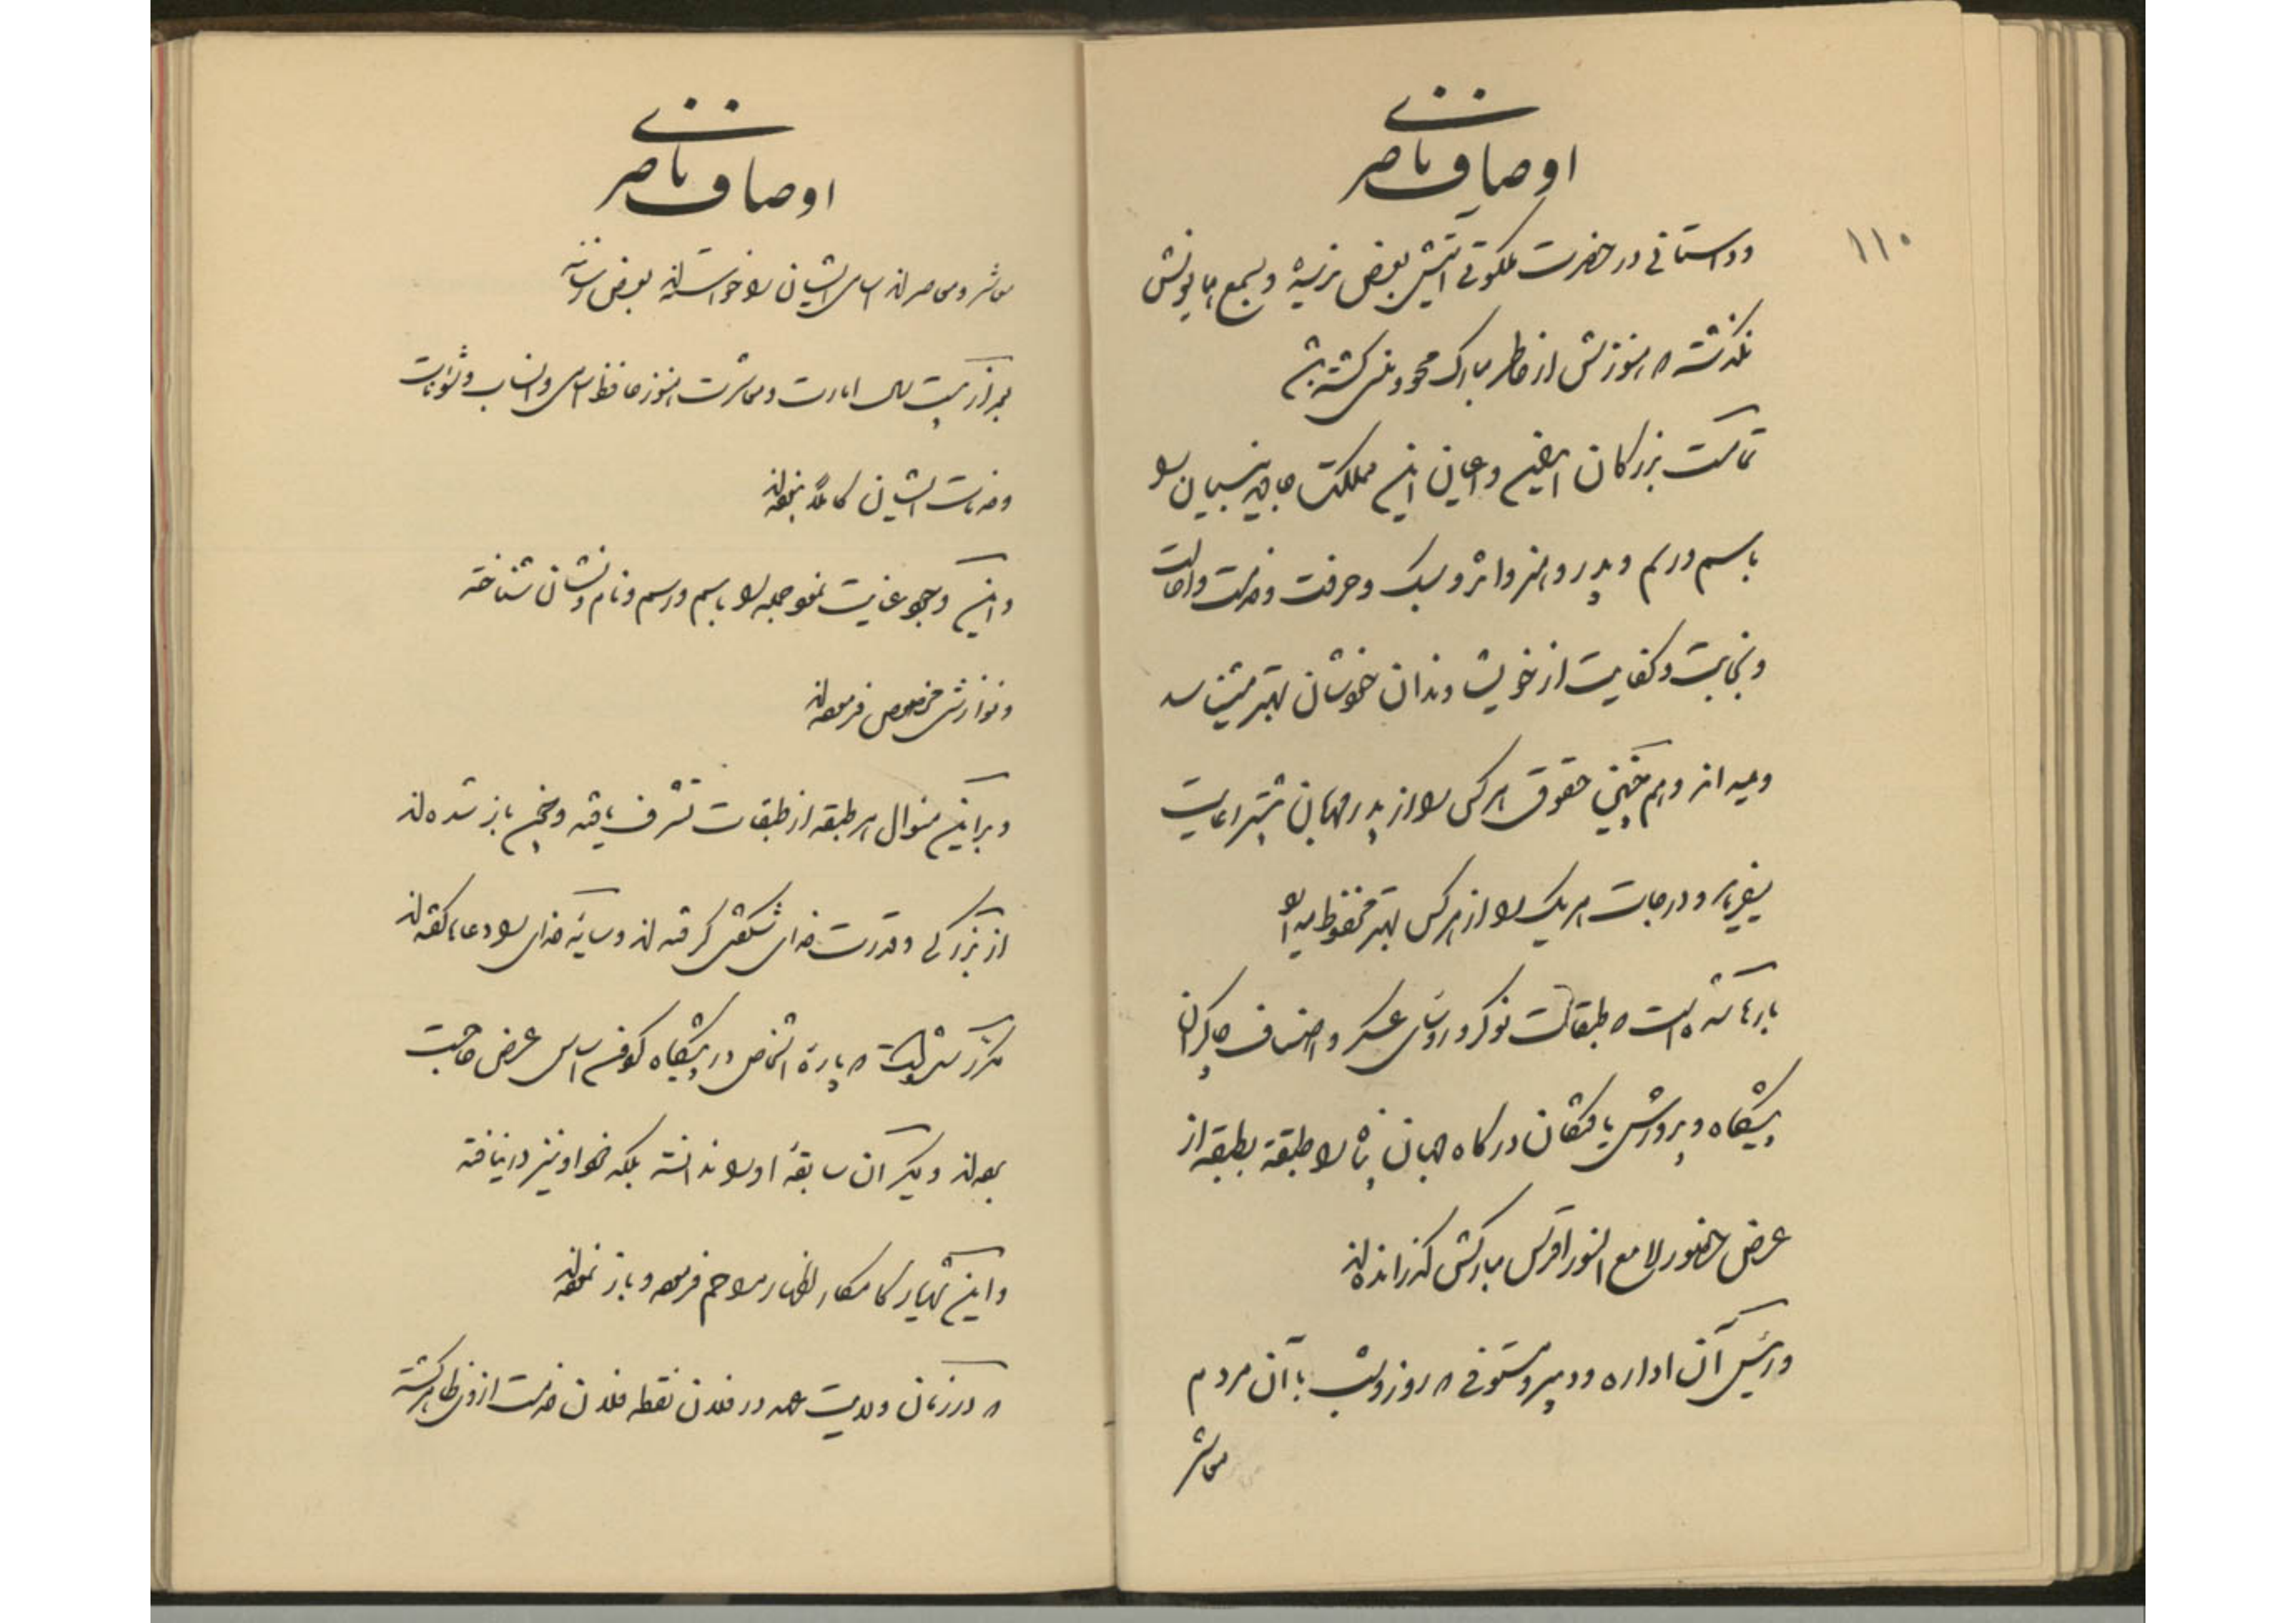 اوصاف ناصری
۱۱۰
و داستانی در حضرت ملکوتی آیتش بعرض نرسیده و بسمع همایونش
نگذشته که هنوزش از خاطر مبارک محو و منسی گشته باشد
تمامت بزرگان اقلیم و اعیان این مملکت را
باسم و رسم و پدر و هنر و اثر و سبک و حرفت و خدمت و اصالت
و نجابت و کفایت از خویشاوندان خودشان بهتر میشناسد
و میداند و هم‌چنین حقوق هر کس را از پدر مهربان بیشتر رعایت
میفرماید و درجات هر یک را از هر کس بهتر محفوظ میدارد
بارها شده است که طبقات نوکر و رؤسای عسکر و اصناف چاکران
پیشگاه و پرورش یافتگان درگاه جهان پناه را طبقه بطبقه از
عرض حضور لامع النور اقدس مبارکش گذرانده‌اند
و رئیس آن اداره و دبیر و مستوفی که روز و شب با آن مردم
معاشر
اوصاف ناصری
معاشر و معاصرند اسامی ایشان را خواسته‌اند بعرض رسانند
بعد از بیست سال امارت و معاشرت هنوز حافظ اسامی و انساب و شئونات
و خدمات ایشان کاملاً نبوده‌اند
و این وجود عنایت نمود جمله را باسم و رسم و نام و نشان شناخته
و نوازش مخصوص فرموده‌اند
و بر این منوال هر طبقه از طبقات تشرف یافته و همچنین باز شده‌اند
از بزرگی و قدرت خدای شگفتی گرفته‌اند و سایه خدای را دعاها گفته‌اند
مکرر شده است که پاره اشخاص در پیشگاه گردون اساس عرض حاجت
نموده‌اند و دیگران سابقه او را ندانسته بلکه خود او نیز در نیافته
و این شهریار کامکار اظهار مراحم فرموده و باز نموده‌اند
که در زمان ولایت عهد در فلان نقطه فلان خدمت از وی ظاهر گشته